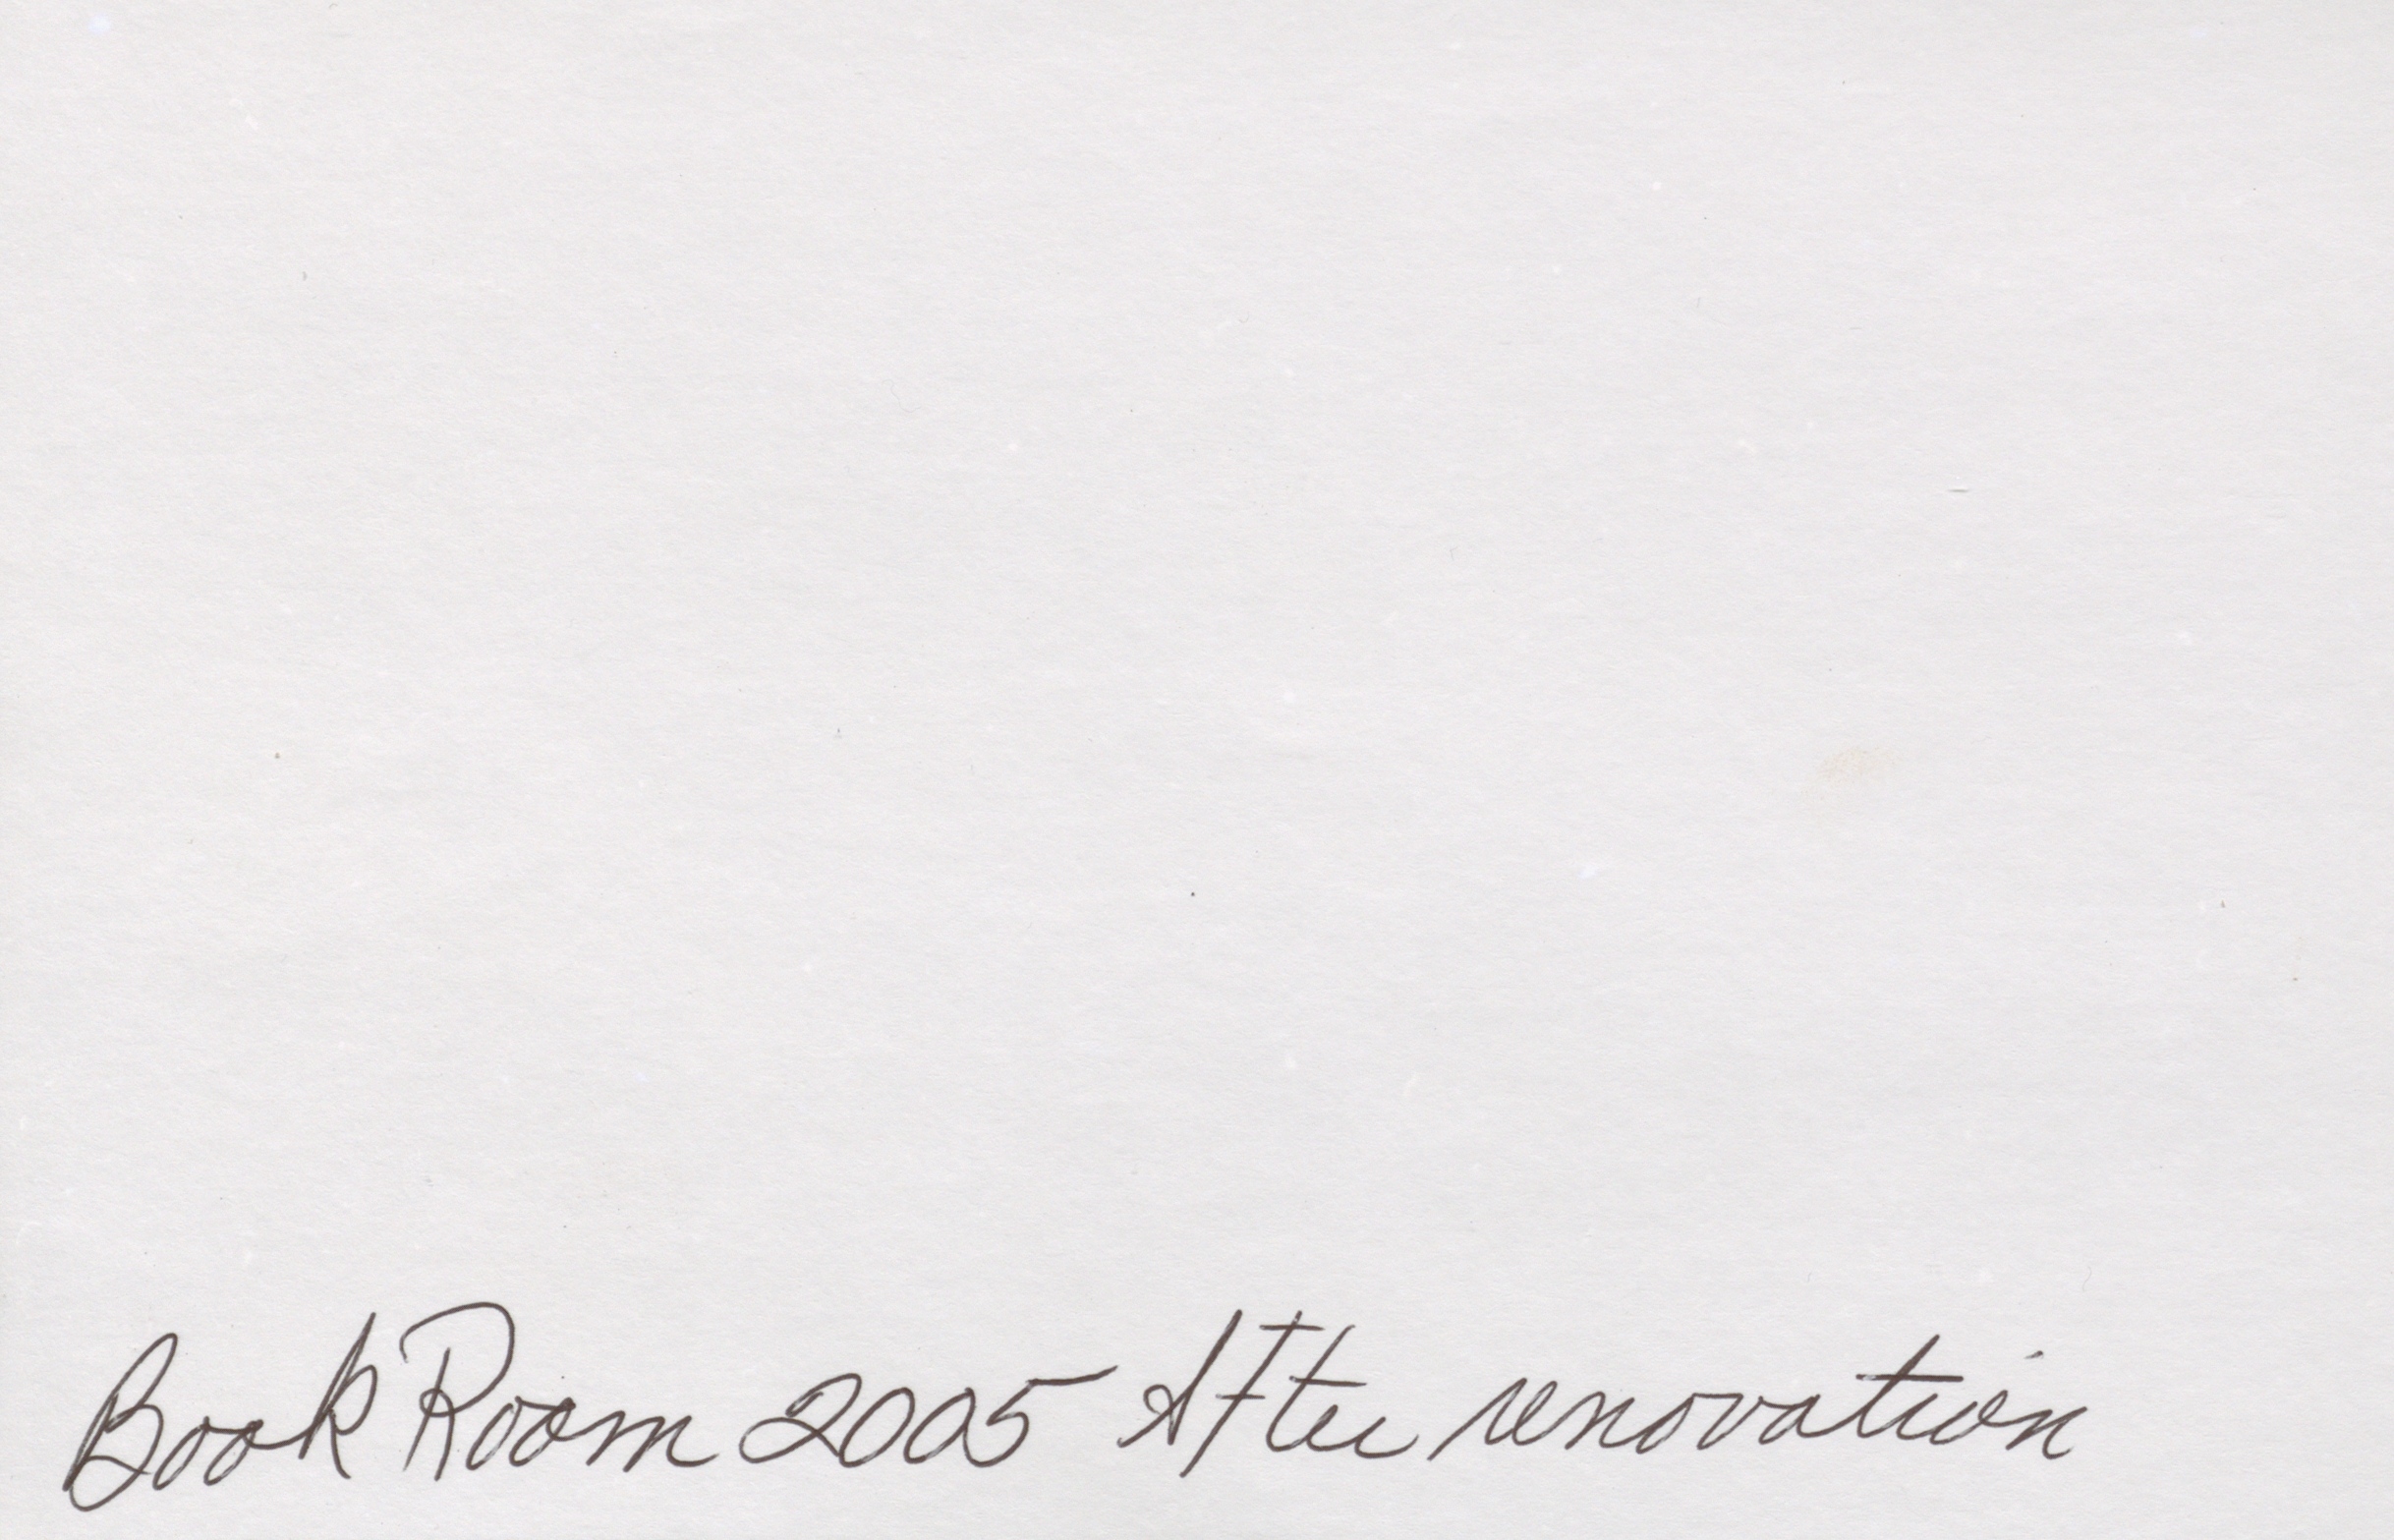 Book Room 2005 After renovation